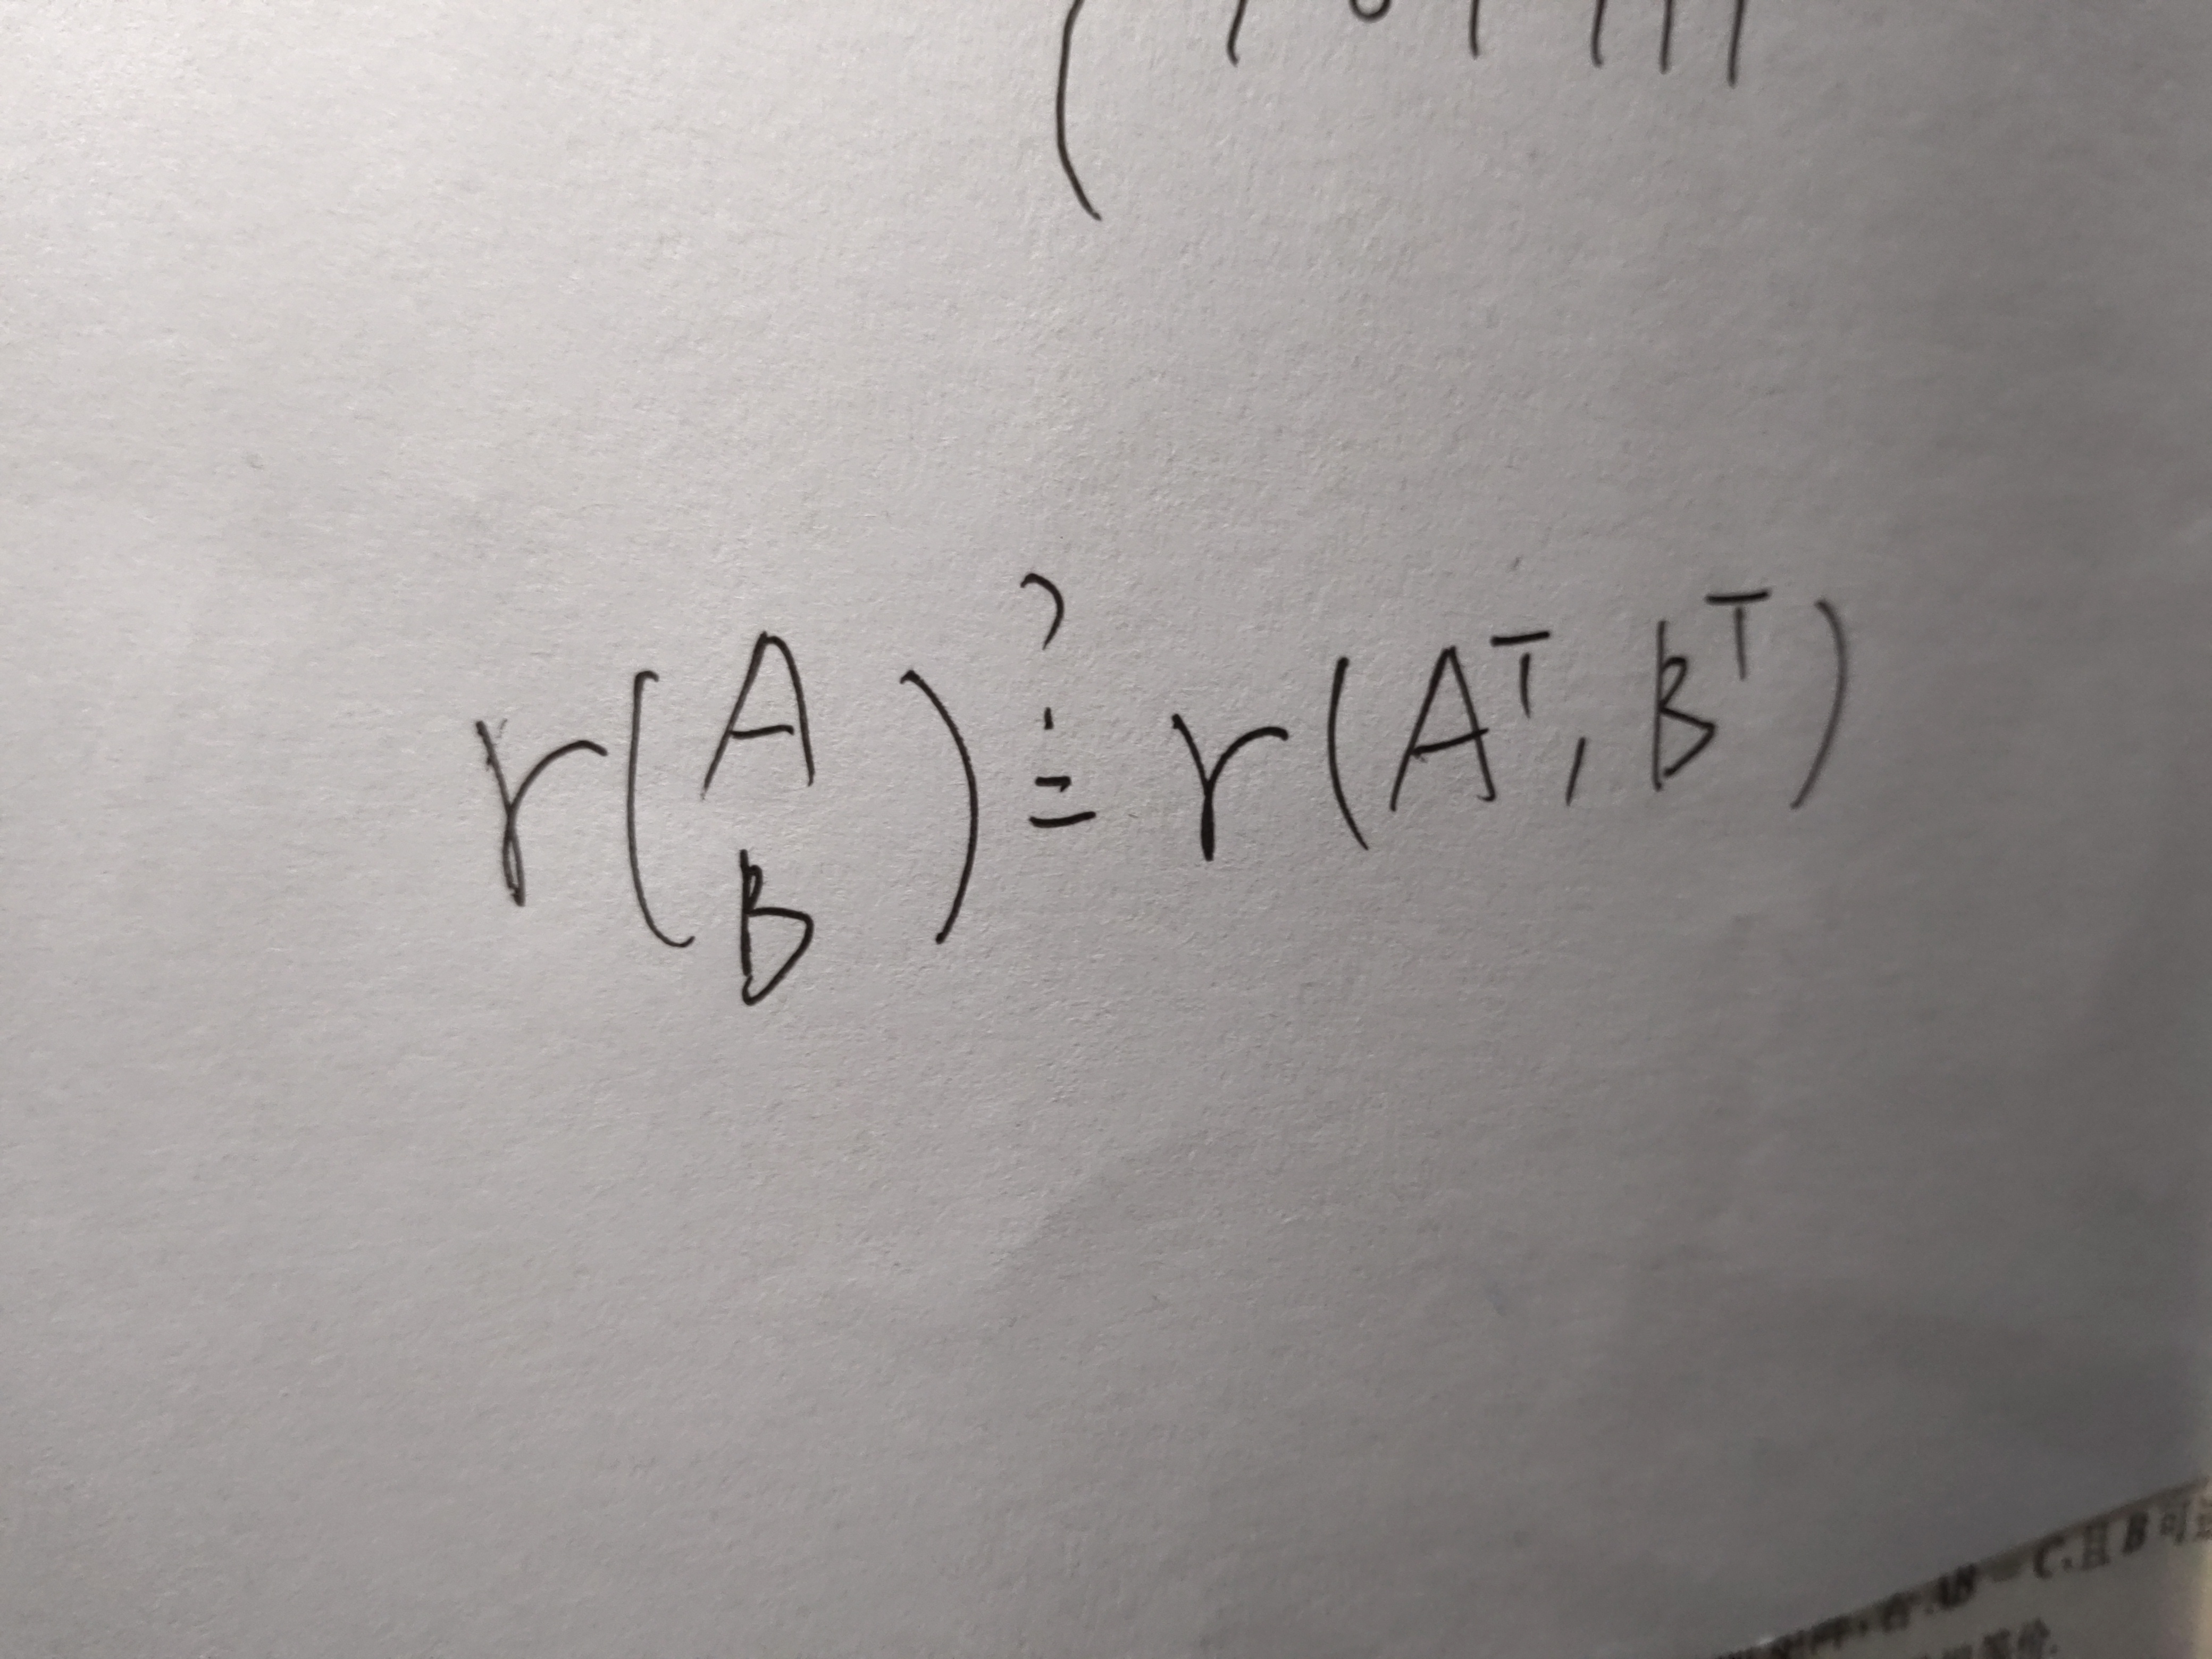 r(A
B) ?= r(A^T, B^T)
AB = C,且B可